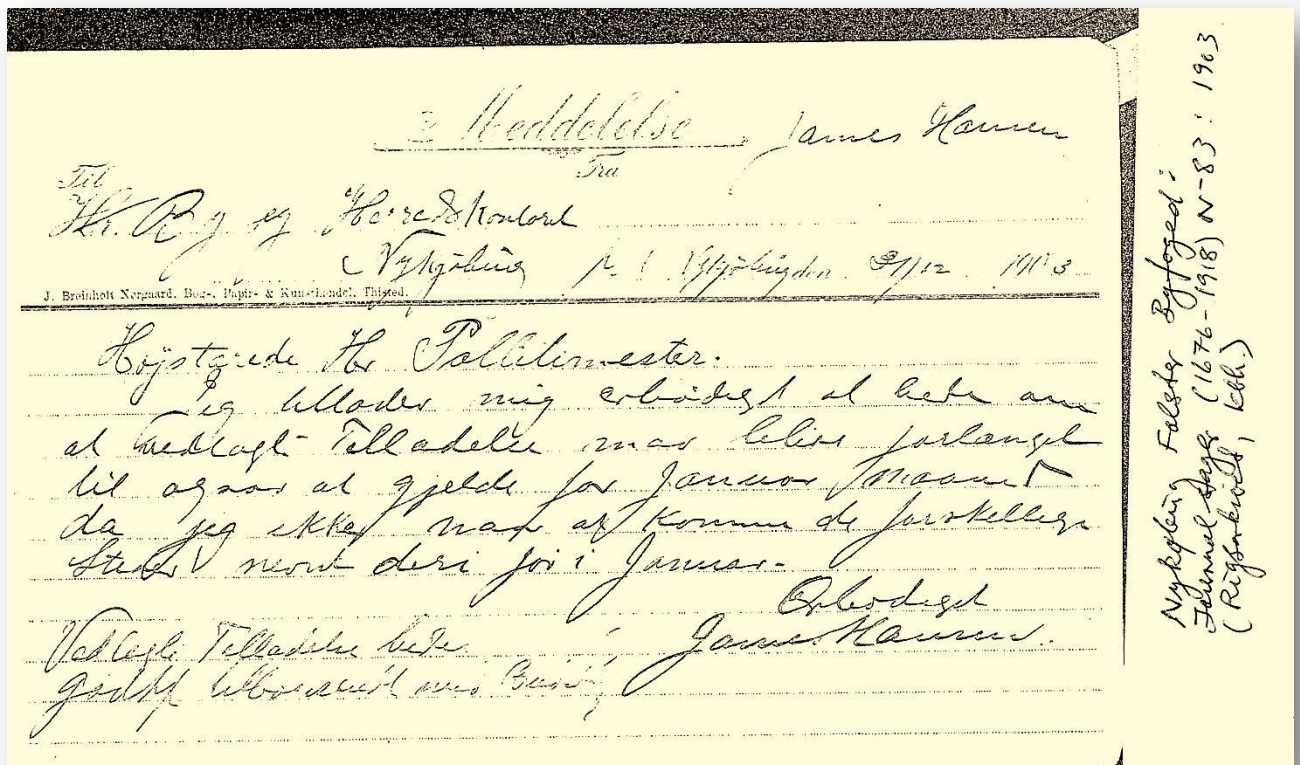 Meddelelse
Fra
James Hansen
Til
Hr. By og Herredskontoret
Nykjøbing
p. t. Nykjøbing den 31/12 1903
J. Breinholt Nørgaard, Bog-, Papir- & Kunsthandel, Thisted.
Højstærede Hr Pollitimester.
Jeg tillader mig erbødigst at bede om
at vedlagt Tilladelse maa blive forlænget
til ogsaa at gjelde for Januar Maaned
da jeg ikke naar at komme de forskellige
Steder nevnt deri før i Januar.
Erbødigst
James Hansen.
Vedlagte Tilladelse bedes
godhf tilbagesendt med
Nykøbing Falster Byfoged:
Journal sager (1676-1918) N-83: 1903
(Rigsarkivet, Kbh.)